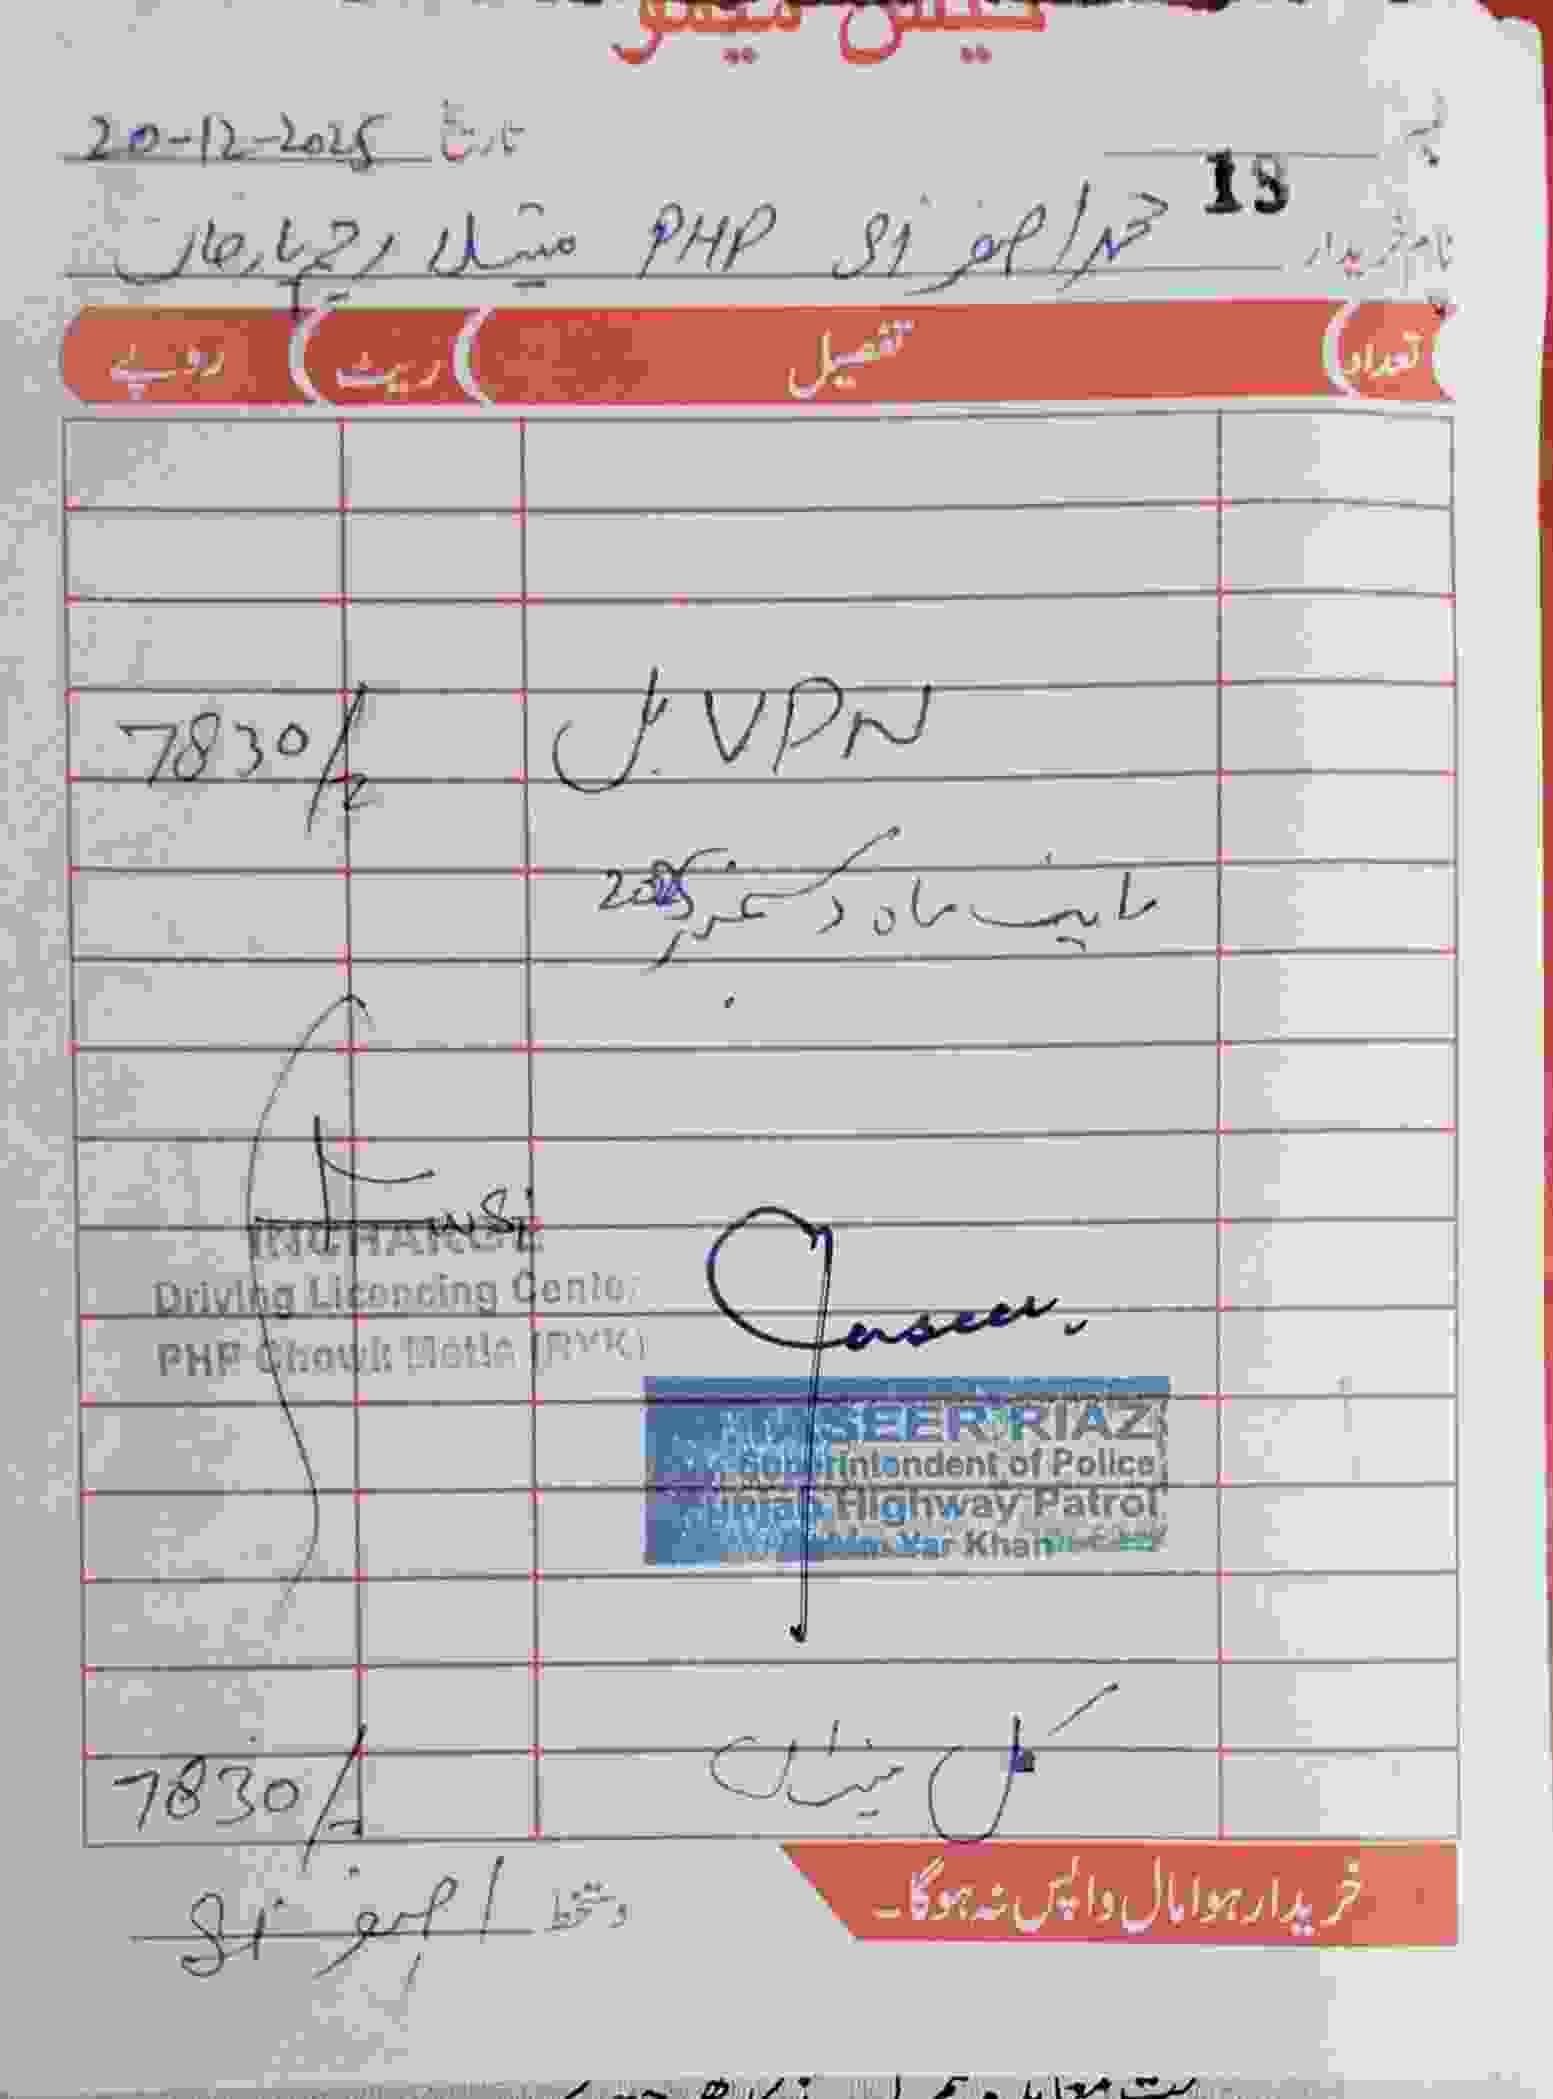 کیش میمو
نمبر 18 تاریخ 20-12-2025
نام خریدار محمد اصغر PHP رحیم یار خان
تعداد تفصیل ریٹ روپے
VPN بل 7830/-
بابت ماہ دسمبر 2025
INCHARGE
Driving Licencing Center
PHP Chowk Metla (RYK)
SEER RIAZ
Superintendent of Police
Punjab Highway Patrol
Rahim Yar Khan
کل میزان 7830/-
خریدا ہوا مال واپس نہ ہوگا۔
دستخط